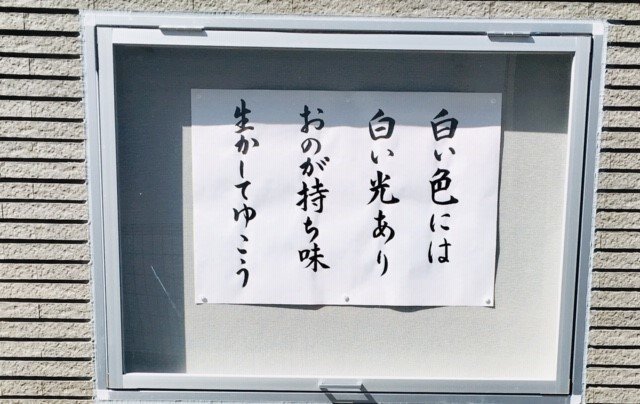 白い色には
白い光あり
おのが持ち味
生かしてゆこう